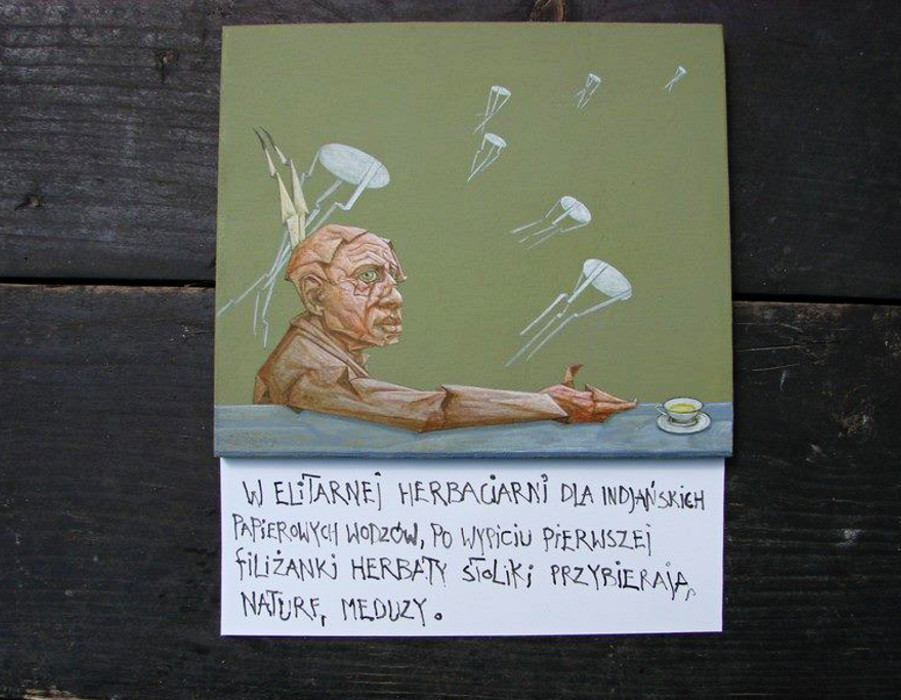 W ELITARNEJ HERBACIARNI DLA INDJAŃSKICH
PAPIEROWYCH WODZÓW, PO WYPICIU PIERWSZEJ
FILIŻANKI HERBATY STOLIKI PRZYBIERAJĄ
NATURĘ MEDUZY.